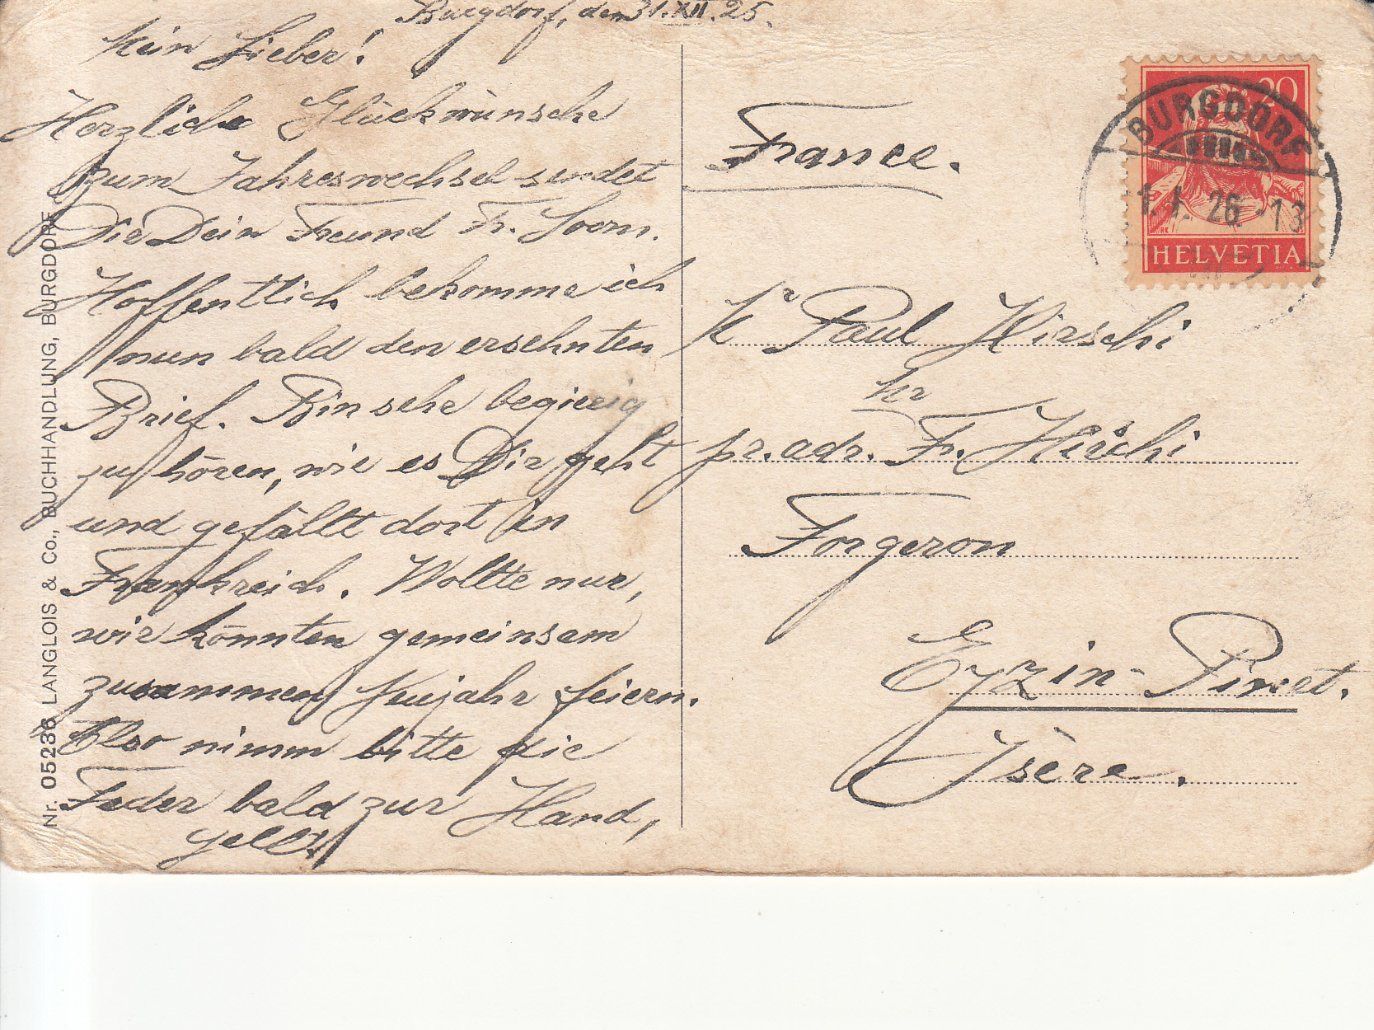 Burgdorf, den 31.XII.25.
Mein Lieber!
Herzliche Glückwünsche
zum Jahreswechsel sendet
Dir Dein Freund Fr. Soom.
Hoffentlich bekomme ich
nun bald den ersehnten
Brief. Bin sehr begierig
zu hören, wie es Dir geht
und gefällt dort in
Frankreich. Wollte nur,
wir könnten gemeinsam
zusammen Neujahr feiern.
Also nimm bitte die
Feder bald zur Hand,
gell!
Nr. 05236 LANGLOIS & Co., BUCHHANDLUNG, BURGDORF
20
HELVETIA
BURGDORF
1.I.26-13
France.
Mr Paul Hirschi
pr. adr. Fr. Hirschi
Forgeron
Eyzin-Pinet.
Isère.